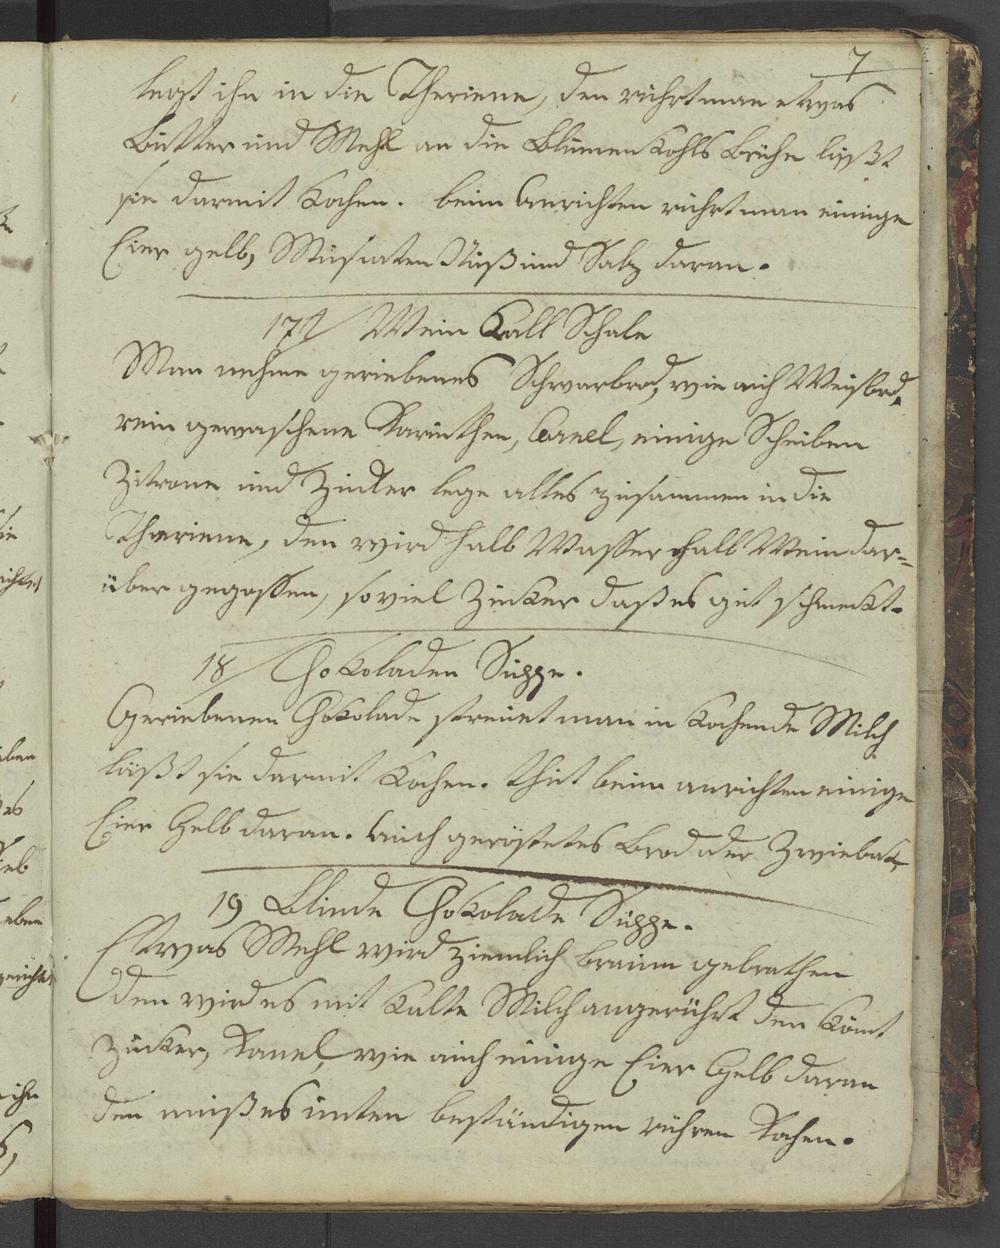 7
legt ihn in die Theriene, den rührt man etwas
Butter und Mehl an die Blumen Kohls Brühe läßt
sie darmit Kochen. beim Anrichten rührt man einige
Eier gelb, Muskaten Nuß und Salz daran.
17 / Wein Kall Schale
Man nehme geriebenes Schwarbrod, wie auch Weisbrod,
rein gewaschene Karinthen, Canel, einige Scheiben
Zitrone und Zucker lege alles zusammen in die
Theriene, den wird halb Wasser halb Wein dar=
über gegossen, so viel Zucker daß es gut schmeckt.
18 / Chokoladen Suppe.
Geriebenen Chokolade streuet man in Kochende Milch
läßt sie darmit Kochen. thut beim anrichten einige
Eier Gelb daran. auch geröstetes Brod oder Zwiebak,
19 Blinde Chokolade Suppe.
Etwas Mehl wird ziemlich braun gebrathen
den wird es mit Kalte Milch angerührt den Kömt
Zucker, Kanel, wie auch einige Eier Gelb daran
den muß es unter beständigen rühren Kochen.